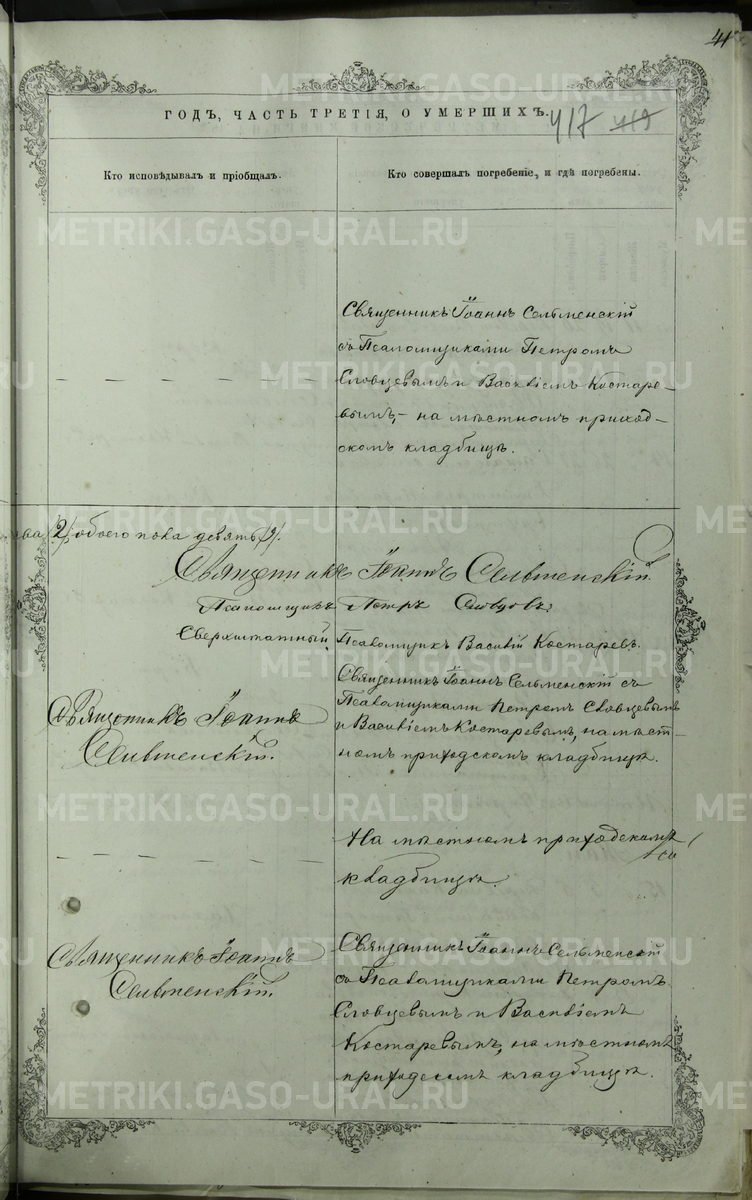 41
ГОДЪ, ЧАСТЬ ТРЕТІЯ, О УМЕРШИХЪ.
417 419
Кто исповѣдывалъ и пріобщалъ.
Кто совершалъ погребеніе, и гдѣ погребены.
Священникъ Іоаннъ Селвменскій
съ Псаломщиками Петромъ
Словцевымъ и Василіемъ Костаре-
вымъ, – на мѣстномъ приход-
скомъ кладбищѣ.
/2/ обоего пола девять /9/.
Священникъ Іоаннъ Селвменскій.
Псаломщикъ Петръ Словцовъ.
Сверхштатный Псаломщикъ Василій Костаревъ.
Священникъ Іоаннъ Селвменскій съ
Псаломщиками Петромъ Словцевымъ
и Василіемъ Костаревымъ, на мѣст-
номъ приходскомъ кладбищѣ.
Священникъ Іоаннъ
Селвменскій.
На мѣстномъ приходскомъ
кладбищѣ.
Священникъ Іоаннъ
Селвменскій.
Священникъ Іоаннъ Селвменскій
съ Псаломщиками Петромъ
Словцевымъ и Василіемъ
Костаревымъ, на мѣстномъ
приходскомъ кладбищѣ.
METRIKI.GASO-URAL.RU